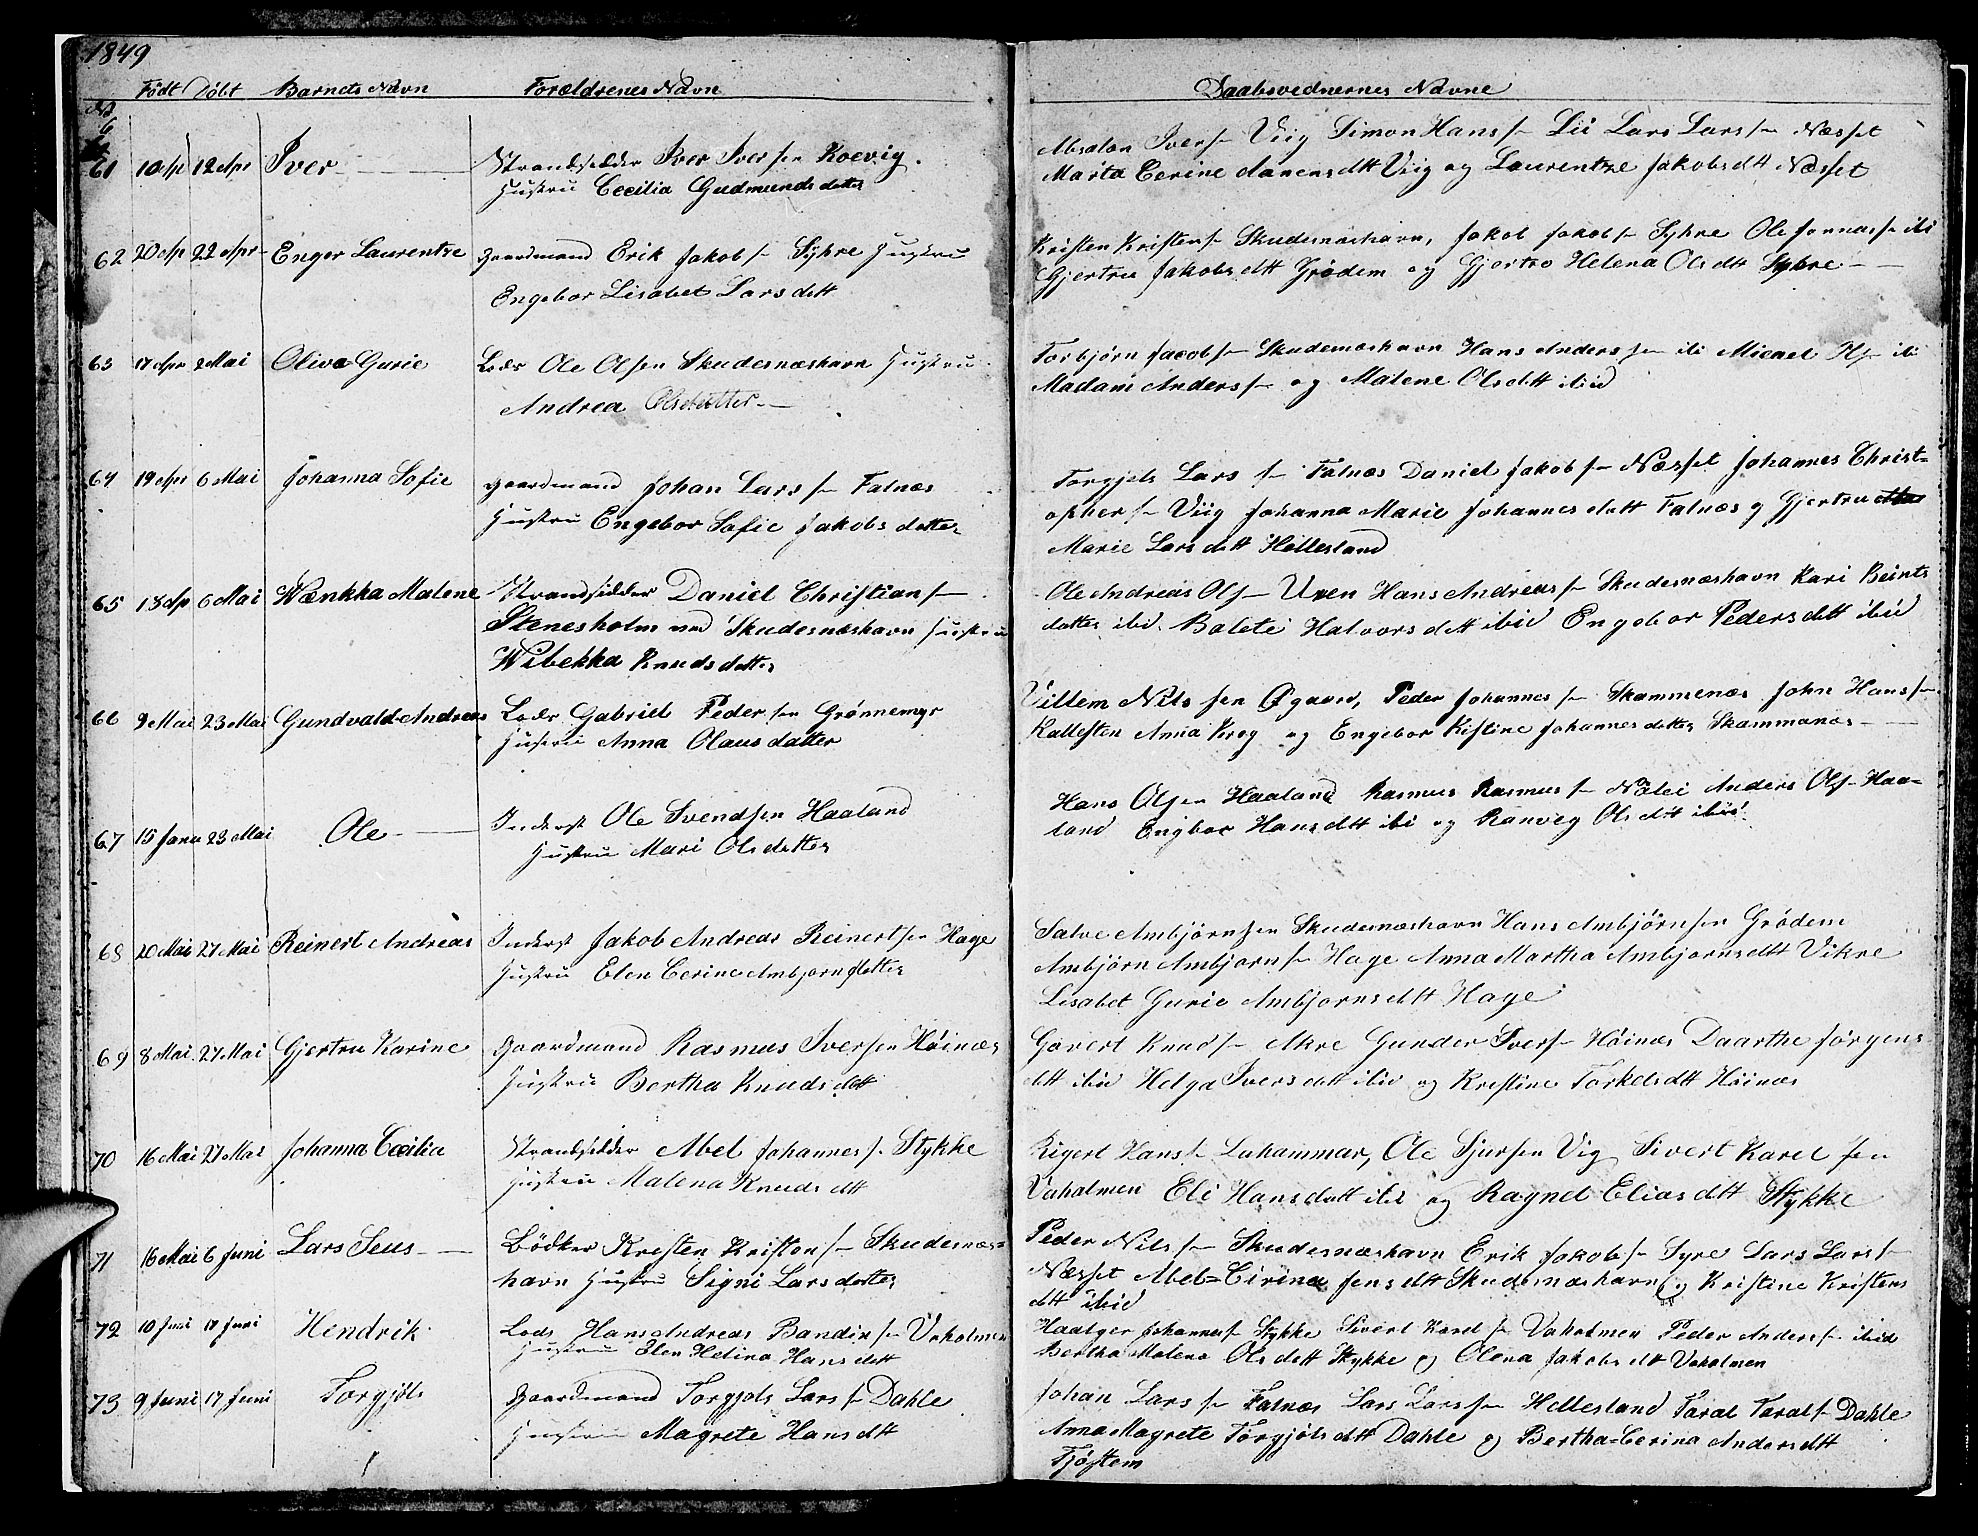 1849
Født Døbt Barnets Navn Forældrenes Navn Daabsvidnernes Navne
No
61 10 Ap 12 Apr Iver Strandsidder Iver Iversen Koevig.
Hustru Cecilia Gudmundsdatter
Absalon Ivers- Viig Simon Hans- Lii Lars Lars- Næsset
Marta Serine Hustru Viig og Laurentze Jakobsdtt Næsset
62 20 Ap 22 Apr Enger Laurentze Gaardmand Erik Jakobs- Syhre Hustru
Engebor Lisabet Larsdatt
Kristen Kristens- Skudesnæshavn, Jakob Jakobs- Syhre Ole Jonnas- ibi
Gjertru Jakobsdtt Grødem og Gjertro Helena Olsdtt Syhre
63 17 Apr 2 Mai Olive Gurie Lods Ole Olsen Skudesnæshavn Hustru
Andrea Olsdatter
Torbjørn Jacobs- Skudesnæshavn Hans Anderssen ibi Micael Ols- ibi
Madam Anders- og Malene Olsdtt ibid
64 19 Apr 6 Mai Johanna Sofie Gaardmand Johan Lars- Falnæs
Hustru Engebor Sofie Jakobsdatter
Torgjels Lars- Falnæs Daniel Jakobs- Næsset Johannes Christ-
opher- Viig Johanna Marie Johannesdatt Falnæs og Gjertru
Marie Larsdatt Hellesland
65 13 Ap 6 Mai Wænkka Malene Strandsidder Daniel Christians-
Stenesholm ved Skudesnæshavn Hustru
Wibekka Knudsdatter
Ole Andreas Ols- Uren Hans Andreas- Skudesnæshavn Kari Beints
datter ibid. Balete Halvorsdtt ibid Engebor Pedersdtt ibid
66 9 Mai 23 Mai Gundvald Andreas Lods Gabriel Pedersen Grønnemyr
Hustru Anna Olausdatter
Villem Nilssen Øgaard, Peder Johannes- Skammenæs John Hans-
Kallesten Anna Krog og Engebor Kistine Johannesdatter Skammanæs
67 15 Janu 23 Mai Ole Inderst Ole Svendsen Haaland
Hustru Mari Olsdatter
Hans Olsen Haaland Rasmus Rasmus- Anders Ols- Haa-
land Engbor Hansdtt ibi og Ranveg Olsdtt ibid
68 20 Mai 27 Mai Reinert Andreas Inderst Jakob Andreas Reinertsen Hage
Hustru Elen Cerine Ambjørnsdatter
Salve Ambjørnsen Skudesnæshavn Hans Ambjørnsen Grødem
Ambjørn Ambjorns- Hage Anna Martha Ambjornsdtt Vikre
Lisabet Gurie Ambjornsdtt Hage
69 8 Mai 27 Mai Gjertru Karine Gaardmand Rasmus Iversen Høinæs
Hustru Bertha Knudsdtt
Govert Knuds- Akre Gunder Ivers- Høinæs Daarthe Jørgens
dtt ibid Helga Iversdatt ibid og Kristine Torkelsdtt Høinæs
70 16 Mai 27 Mai Johanna Cecilia Strandsidder Abel Johannes- Stykke
Hustru Malena Knudsdtt
Rigert Hans- Lahammar, Ole Sjursen Vig Sivert Karelsen
Vaholmen Eli Hansdatt ibi og Ragnel Eliasdtt Stykke
71 16 Mai 6 Juni Lars Seus Bødker Kristen Kristen- Skudesnæs-
havn Hustru Signi Larsdatter
Peder Nils- Skudesnæshavn Erik Jakobs- Syre Lars Lars-
Næsset Abel-Cirina Jensdtt Skudesnæshavn og Kristine Kristens
dtt ibid
72 10 Juni 17 Juni Hendrik Lods Hans Andreas Bandin- Vaholmen
Hustru Elen Helina Hansdatt
Haalger Johannes- Stykke Sivert Karel- Vaholmen Peder Anders- ibid
Bertha Malena Olsdatt Stykke og Olena Jakobsdtt Vaholmen
73 9 Juni 17 Juni Torgjøls Gaardmand Torgjøls Lars- Dahle
Hustru Magrete Hansdtt
Johan Lars- Falnæs Lars Larssen Hellesland Taral Taral- Dahle
Anna Magrete Torgjølsdtt Dahle og Bertha-Cerina Andersdtt
Tjøstem